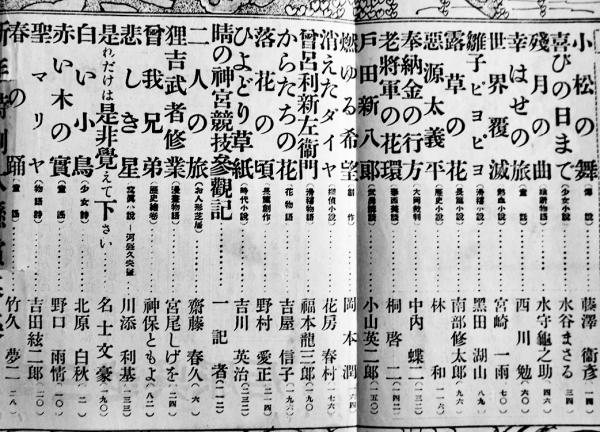 小松の舞 (傳說) 藤澤衞彦 (一四)
喜びの日まで (少女小說) 水谷まさる
殘月の曲 水守龜之助 (四六)
幸はせの旅 (童話) 西川勉 (六〇)
世界覆滅 (熱血小說) 宮崎一雨 (七〇)
雛子ピヨピヨ (滑稽小說) 黑田湖山 (八九)
露草の花 (長篇小說) 南部修太郎
惡源太義平 (歷史小說) 林和 (一一六)
奉納金の行方 (大岡裁判) 中内蝶二
老將軍の花環 桐啓二
戸田新八郎 小山英二郎 (一五〇)
燃ゆる希望 (創作) 岡本潤
消えたダイヤ (探偵小說) 花房春村 (七六)
曾呂利新左衞門 (滑稽物語) 福本龍三郎 (九六)
からたちの花 (花物語) 吉屋信子
落花の頃 (長篇創作) 野村愛正 (二一四)
ひよどり草紙 (時代小說) 吉川英治
晴の神宮競技參觀記 一記者
二人の旅 (お人形芝居) 齋藤春久 (六)
狸吉武者修業 (漫畫物語) 宮尾しげを (二四)
曾我兄弟 (歷史繪卷) 神保ともよ (八二)
悲しき星 川添利基 (一三三)
是れだけは是非覺えて下さい 名士文豪 (一九〇)
白い小鳥 (少女詩) 北原白秋 (二)
赤い木の實 (童謠) 野口雨情 (一〇)
聖マリヤ (物語詩) 吉田絃二郎
春の踊 (童謠) 竹久夢二 (二八)